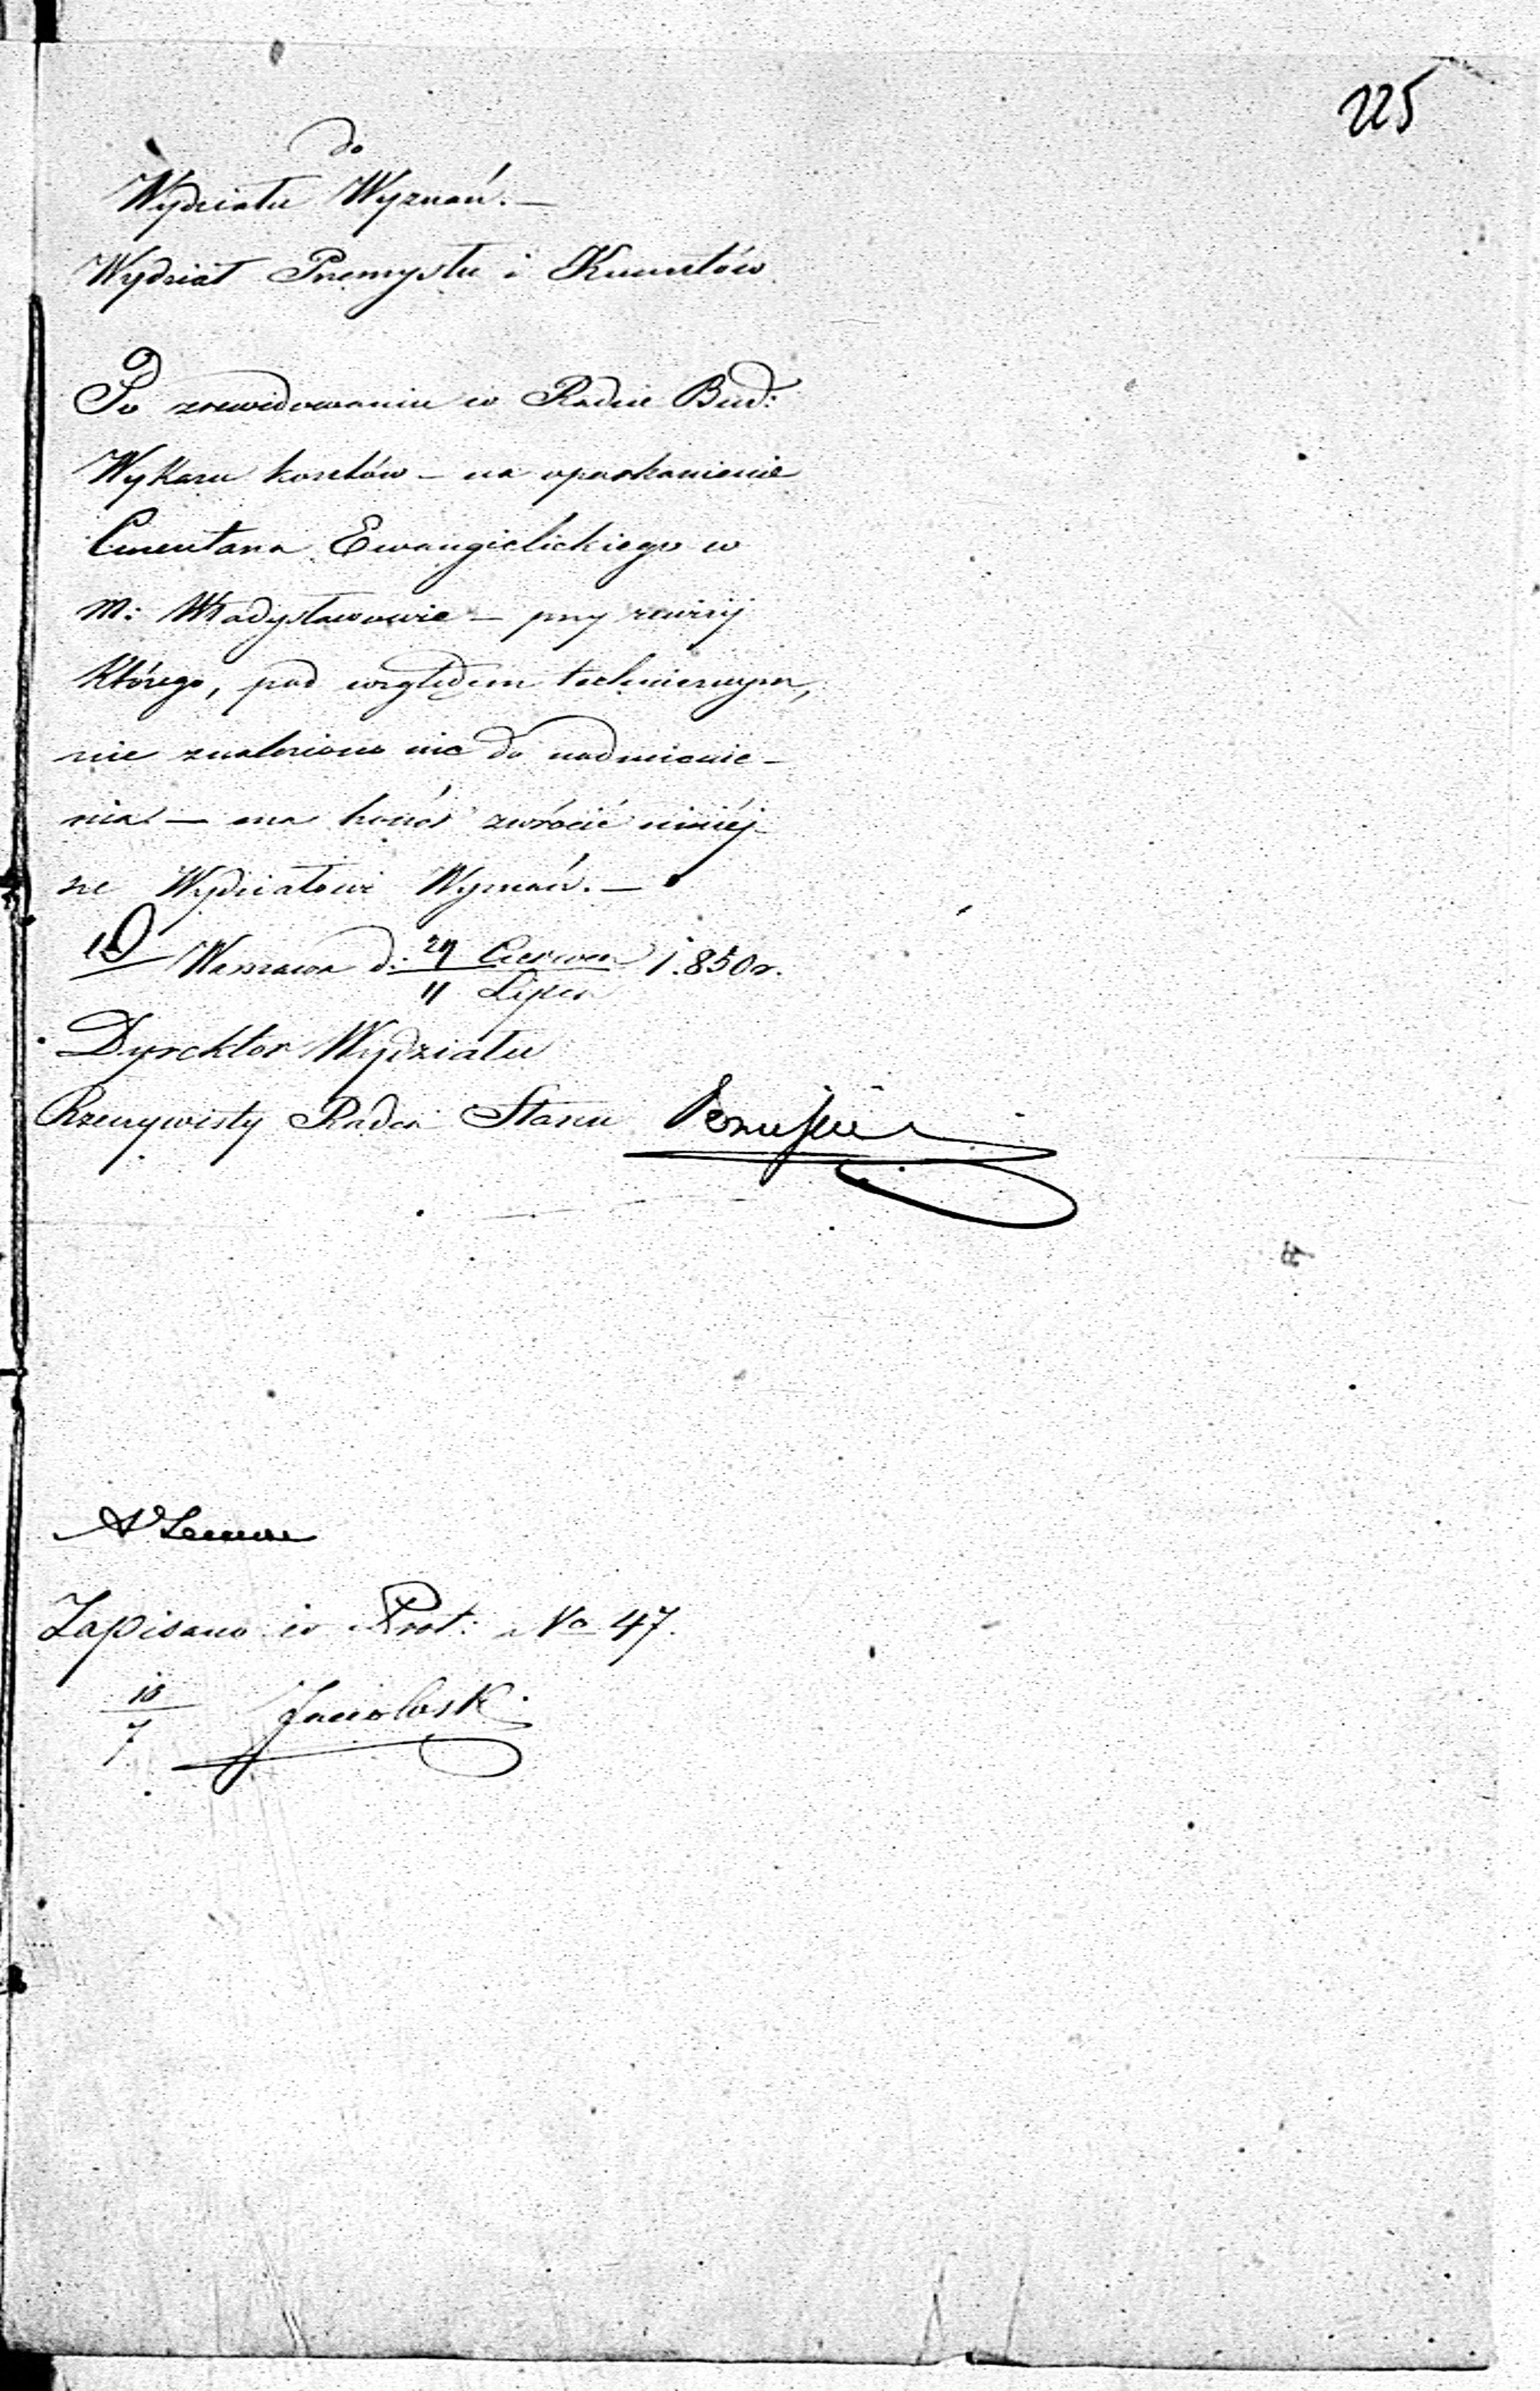 225
do
Wydziału Wyznań. —
Wydział Przemysłu i Kunsztów
Po zrewidowaniu w Radzie Bud:
Wykazu kosztów – na oparkanienie
Cmentarza Ewangielickiego w
m: Władysławowie – przy rewizij
którego, pod względem technicznym,
nie znaleziono nic do nadmienie-
nia – ma honór zwrócić niniéj-
sze Wydziałowi Wyznań. —
Warszawa d: 29 Czerwca / 11 Lipca 1.850 r.
Dyrektor Wydziału
Rzeczywisty Radca Stanu
Zapisano w Prot: No 47.
10
7